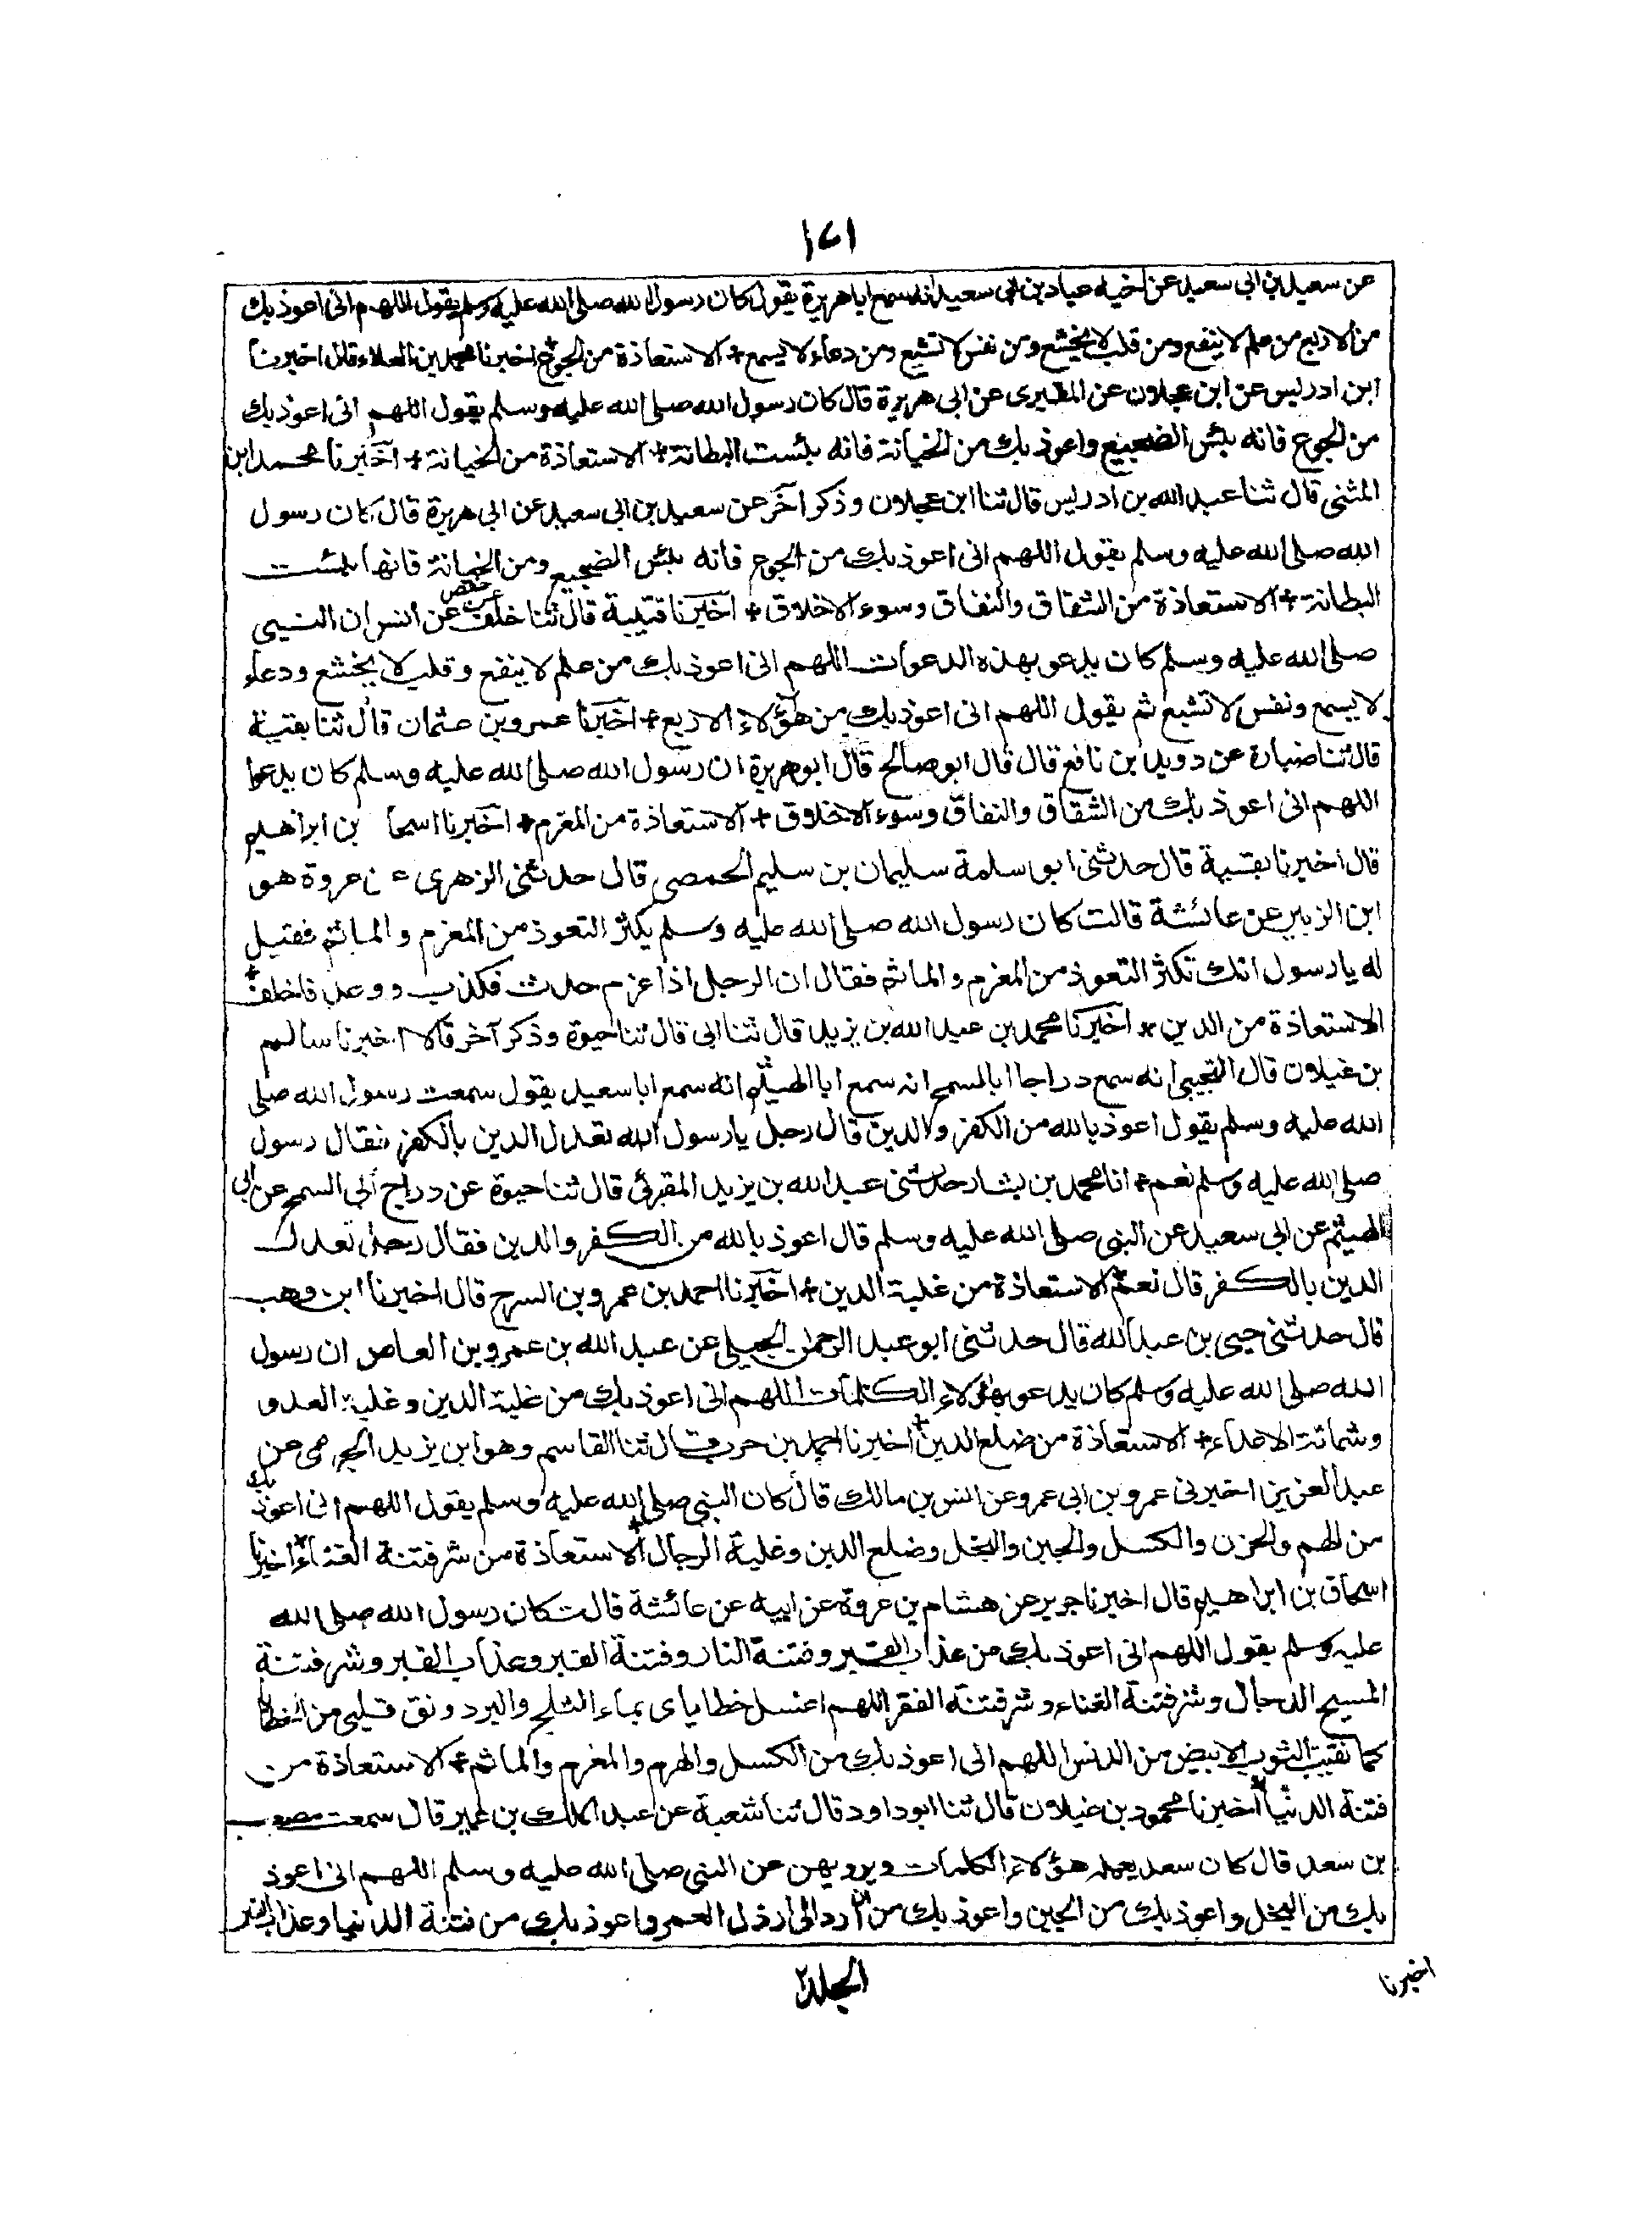 ١٤١
عن سعيد بن ابى سعيد عن اخيه عباد بن ابى سعيد انه سمع ابا هريرة يقول كان رسول الله صلى الله عليه وسلم يقول اللهم انى اعوذ بك
من الاربع من علم لا ينفع ومن قلب لا يخشع ومن نفس لا تشبع ومن دعاء لا يسمع + الاستعاذة من الجوع + اخبرنا محمد بن العلاء قال اخبرنا
ابن ادريس عن ابن عجلان عن المقبرى عن ابى هريرة قال كان رسول الله صلى الله عليه وسلم يقول اللهم انى اعوذ بك
من الجوع فانه بئس الضجيع واعوذ بك من الخيانة فانه بئست البطانة + الاستعاذة من الخيانة + اخبرنا محمد ابن
المثنى قال ثنا عبد الله بن ادريس قال ثنا ابن عجلان وذكر آخر عن سعيد بن ابى سعيد عن ابى هريرة قال كان رسول
الله صلى الله عليه وسلم يقول اللهم انى اعوذ بك من الجوع فانه بئس الضجيع ومن الخيانة فانها بئست
البطانة + الاستعاذة من الشقاق والنفاق وسوء الاخلاق + اخبرنا قتيبة قال ثنا خلف عن حفص عن انس ان النبى
صلى الله عليه وسلم كان يدعو بهذه الدعوات اللهم انى اعوذ بك من علم لا ينفع وقلب لا يخشع ودعاء
لا يسمع ونفس لا تشبع ثم يقول اللهم انى اعوذ بك من هؤلاء الاربع + اخبرنا عمرو بن عثمان قال ثنا بقية
قال ثنا ضبارة عن دويد بن نافع قال قال ابو صالح قال ابو هريرة ان رسول الله صلى الله عليه وسلم كان يدعوا
اللهم انى اعوذ بك من الشقاق والنفاق وسوء الاخلاق + الاستعاذة من المغرم + اخبرنا اسحا بن ابراهيم
قال اخبرنا بقية قال حدثنى ابو سلمة سليمان بن سليم الحمصى قال حدثنى الزهرى عن عروة هو
ابن الزبير عن عائشة قالت كان رسول الله صلى الله عليه وسلم يكثر التعوذ من المغرم والماثم فقيل
له يا رسول انك تكثر التعوذ من المغرم والماثم فقال ان الرجل اذا غرم حدث فكذب ووعد فاخلف +
الاستعاذة من الدين + اخبرنا محمد بن عبد الله بن يزيد قال ثنا ابى قال ثنا حيوة وذكر آخر قالا اخبرنا سالم
بن غيلان قال التجيبى انه سمع دراجا ابا السمح انه سمع ابا الهيثم انه سمع ابا سعيد يقول سمعت رسول الله صلى
الله عليه وسلم يقول اعوذ بالله من الكفر والدين قال رجل يا رسول الله تعدل الدين بالكفر فقال رسول
صلى الله عليه وسلم نعم + انا محمد بن بشار حدثنى عبد الله بن يزيد المقرئ قال ثنا حيوة عن دراج ابى السمح عن ابى
الهيثم عن ابى سعيد عن النبى صلى الله عليه وسلم قال اعوذ بالله من الكفر والدين فقال رجل تعدل
الدين بالكفر قال نعم + الاستعاذة من غلبة الدين + اخبرنا احمد بن عمرو بن السرح قال اخبرنا ابن وهب
قال حدثنى حيى بن عبد الله قال حدثنى ابو عبد الرحمن الحبلى عن عبد الله بن عمرو بن العاص ان رسول
الله صلى الله عليه وسلم كان يدعو بهؤلاء الكلمات اللهم انى اعوذ بك من غلبة الدين وغلبة العدو
وشماتة الاعداء + الاستعاذة من ضلع الدين + اخبرنا احمد بن حرب قال ثنا القاسم وهو ابن يزيد الجرمى عن
عبد العزيز اخبرنى عمرو بن ابى عمرو عن انس بن مالك قال كان النبى صلى الله عليه وسلم يقول اللهم انى اعوذ بك
من الهم والحزن والكسل والجبن والبخل وضلع الدين وغلبة الرجال + الاستعاذة من شر فتنة الغناء + اخبرنا
اسحاق بن ابراهيم قال اخبرنا جرير عن هشام بن عروة عن ابيه عن عائشة قالت كان رسول الله صلى الله
عليه وسلم يقول اللهم انى اعوذ بك من عذاب القبر وفتنة النار وفتنة القبر وعذاب القبر وشر فتنة
المسيح الدجال وشر فتنة الغناء وشر فتنة الفقر اللهم اغسل خطاياى بماء الثلج والبرد ونق قلبى من الخطايا
كما نقيت الثوب الابيض من الدنس اللهم انى اعوذ بك من الكسل والهرم والمغرم والماثم + الاستعاذة من
فتنة الدنيا + اخبرنا محمود بن غيلان قال ثنا ابو داود قال ثنا شعبة عن عبد الملك بن عمير قال سمعت مصعب
بن سعد قال كان سعد يعلمه هؤلاء الكلمات ويرويهن عن النبى صلى الله عليه وسلم اللهم انى اعوذ
بك من البخل واعوذ بك من الجبن واعوذ بك من ان ارد الى ارذل العمر واعوذ بك من فتنة الدنيا وعذاب القبر
اخبرنا
الجلد٢